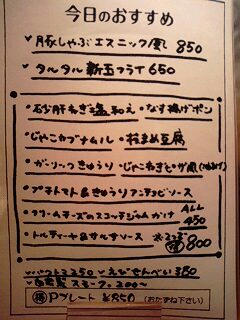 今日のおすすめ
・豚しゃぶエスニック風 850
・タルタル新玉フライ 650
・砂肝ねぎ塩和え ・なす揚げポン
・じゃこカブナムル ・枝まめ豆腐
・ガーリックきゅうり ・じゃこねぎピザ風(油あげ)
・プチトマト&きゅうりアンチョビソース
・クリームチーズのスコッチジャムかけ ALL 450
・トルティーヤ&サルサソース 800
250 ・えびせんべい 380
・自家製スモーク 200~
得 Pプレート ¥850 (おたずね下さい)